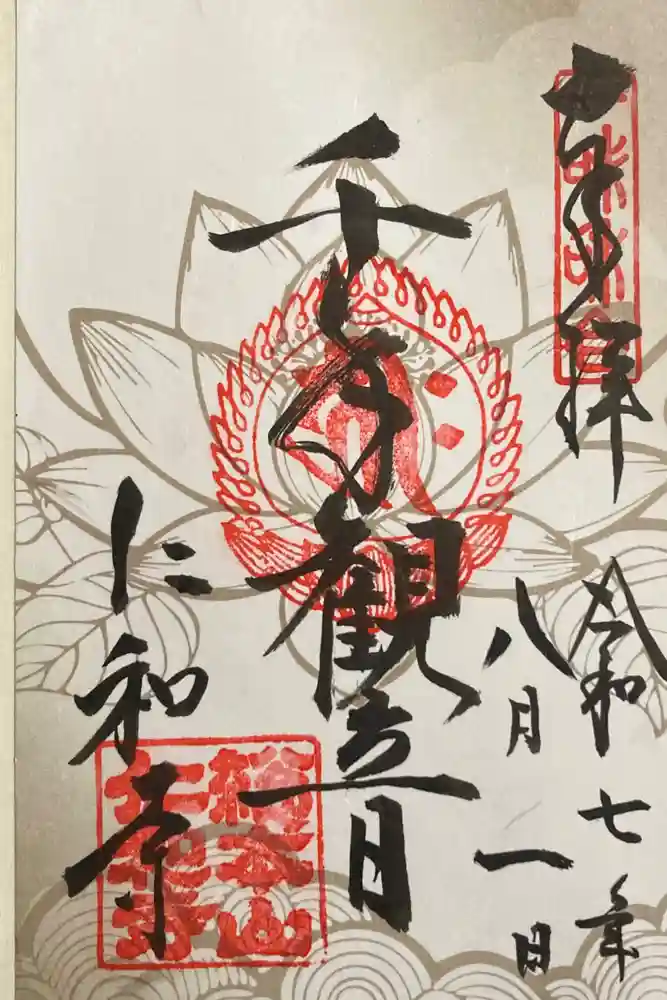 奉拝
令和七年
八月一日
千手観音
仁和寺